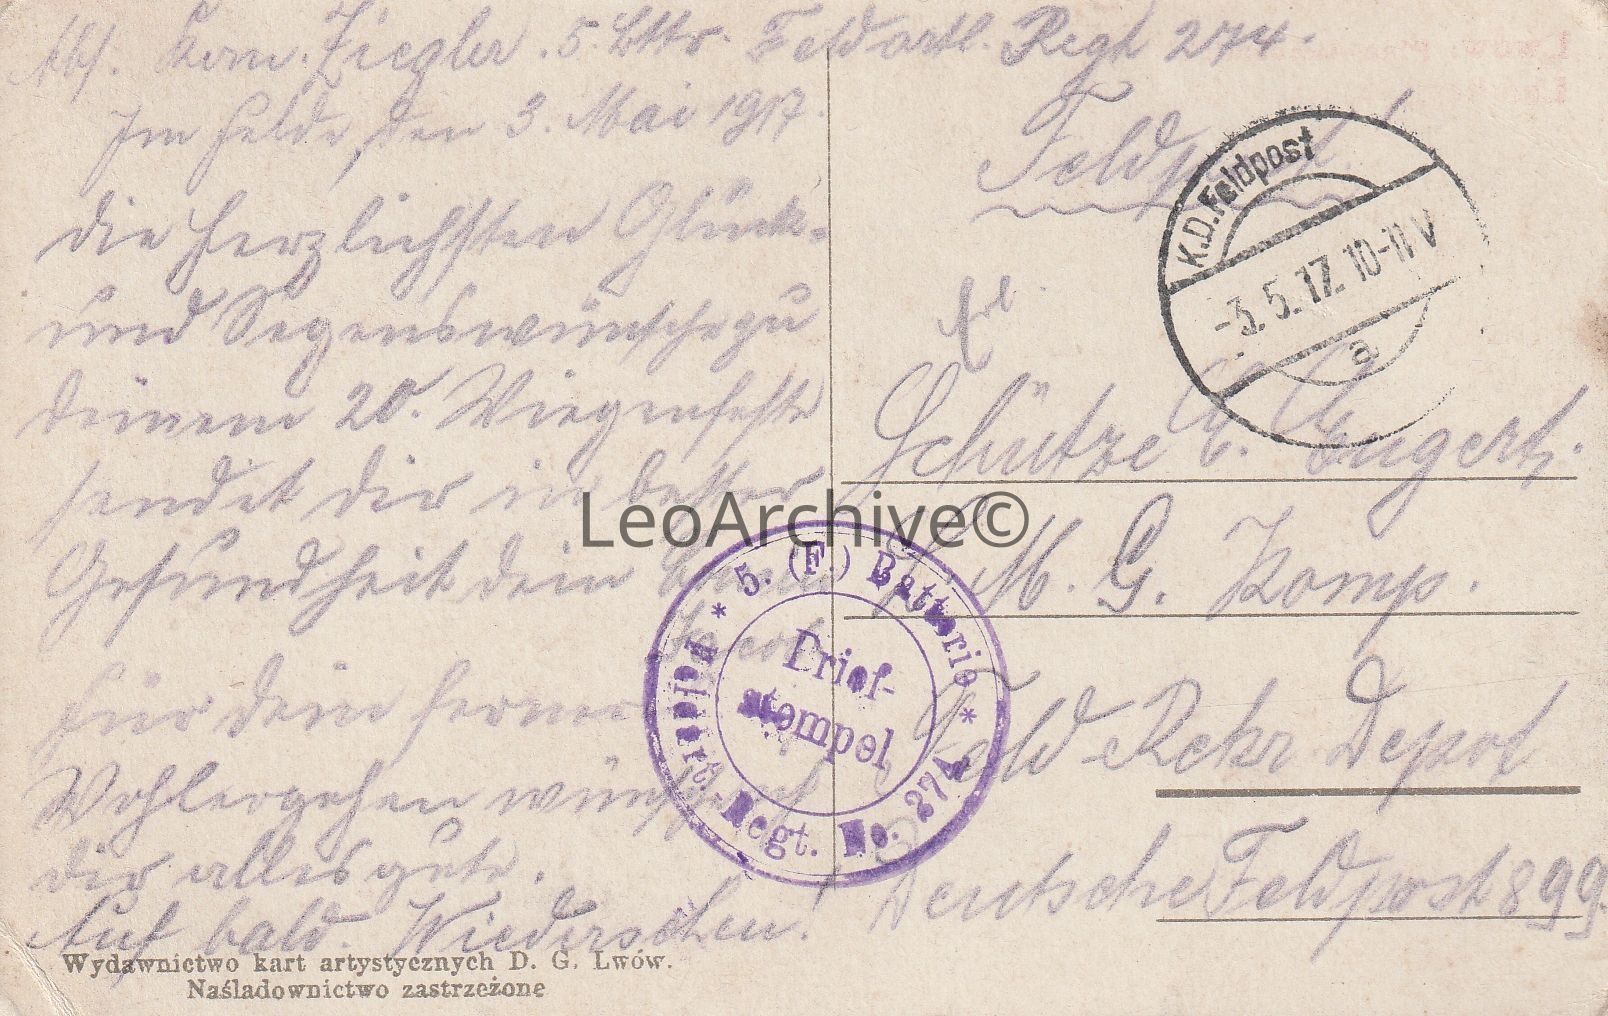 Abs. Kan. Ziegler. 5. Bttr. Feldartl. Regt 274.
Im Felde, den 3. Mai 1917.
Die herzlichsten Glück-
und Segenswünsche zu
deinem 20. Wiegenfeste
sendet dir in bester
Gesundheit dein
Jacob
Für dein ferneres
Wohlergehen wünsche ich
dir alles gute.
Auf bald. Wiedersehen!
Wydawnictwo kart artystycznych D. G. Lwów.
Naśladownictwo zastrzeżone
Feldpost!
K.D.Feldpost
-3.5.17. 10-11 V
a
Schütze Engert.
M. G. Komp.
Feld Rekr Depot
Deutsche Feldpost 899.
* 5. (F.) Batterie *
Feldart.-Regt. No. 274
Brief-
stempel
LeoArchive©